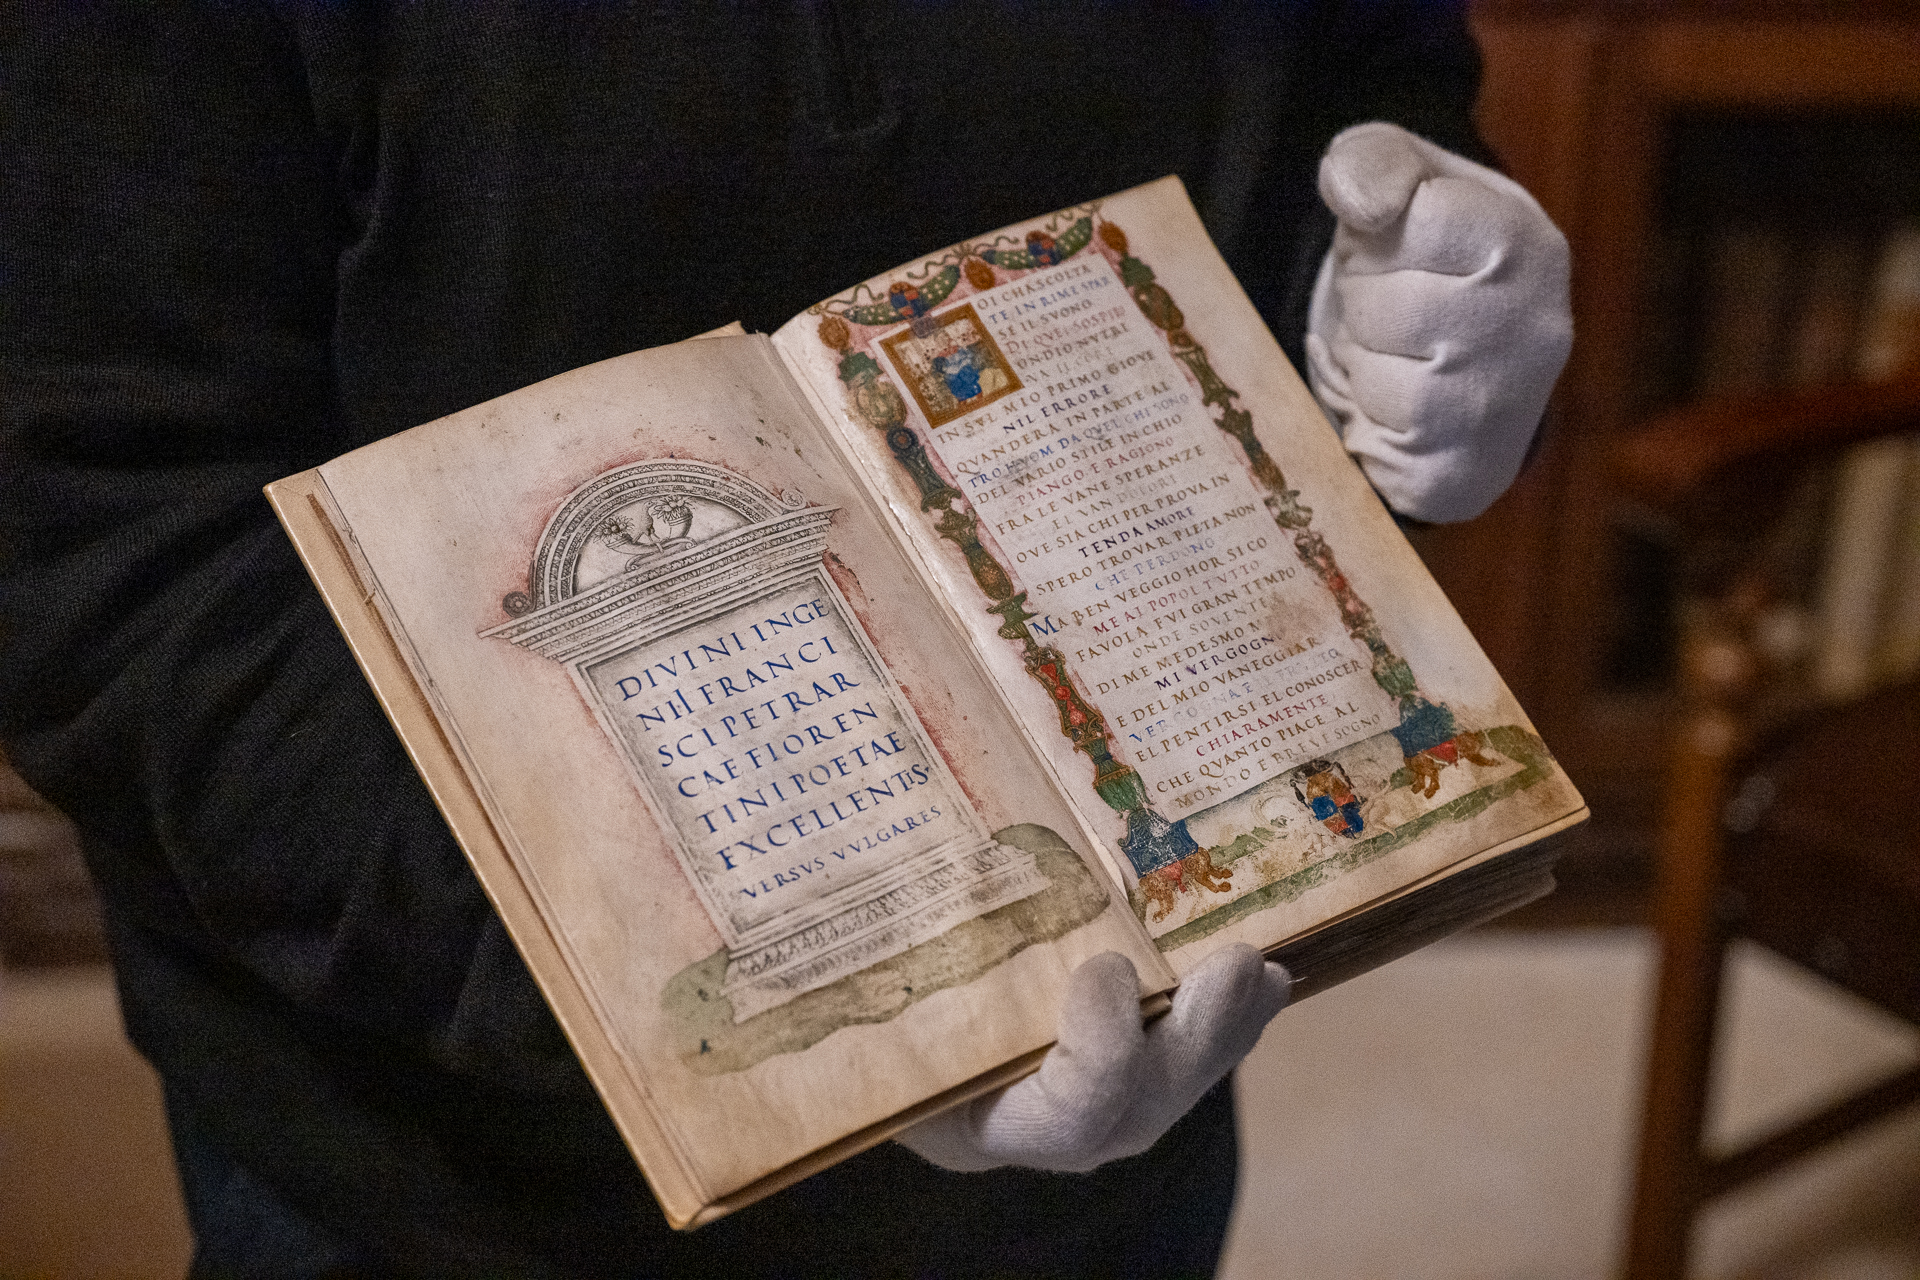 DIVINI INGE
NII FRANCI
SCI PETRAR
CAE FIOREN
TINI POETAE
EXCELLENTIS·
VERSVS VVLGARES
OI CHASCOLTA
TE IN RIME SPAR
SE IL SVONO
DI QVEI SOSPIRI
ONDIO NVTRI
VA IL CORE
IN SVL MIO PRIMO GIOVE
NIL ERRORE
QVANDERA IN PARTE AL
TRO HVOM DA QVEL CHI SONO
DEL VARIO STILE IN CHIO
PIANGO E RAGIONO
FRA LE VANE SPERANZE
EL VAN DOLORE
OVE SIA CHI PER PROVA IN
TENDA AMORE
SPERO TROVAR PIETA NON
CHE PERDONO
MA BEN VEGGIO HOR SI CO
ME AL POPOL TVTTO
FAVOLA FVI GRAN TEMPO
ONDE SOVENTE
DI ME MEDESMO
MI VERGOGN
E DEL MIO VANEGGIAR
VERGOGNA E
EL PENTIRSI EL CONOSCER
CHIARAMENTE
CHE QVANTO PIACE AL
MONDO E BREVE SOGNO